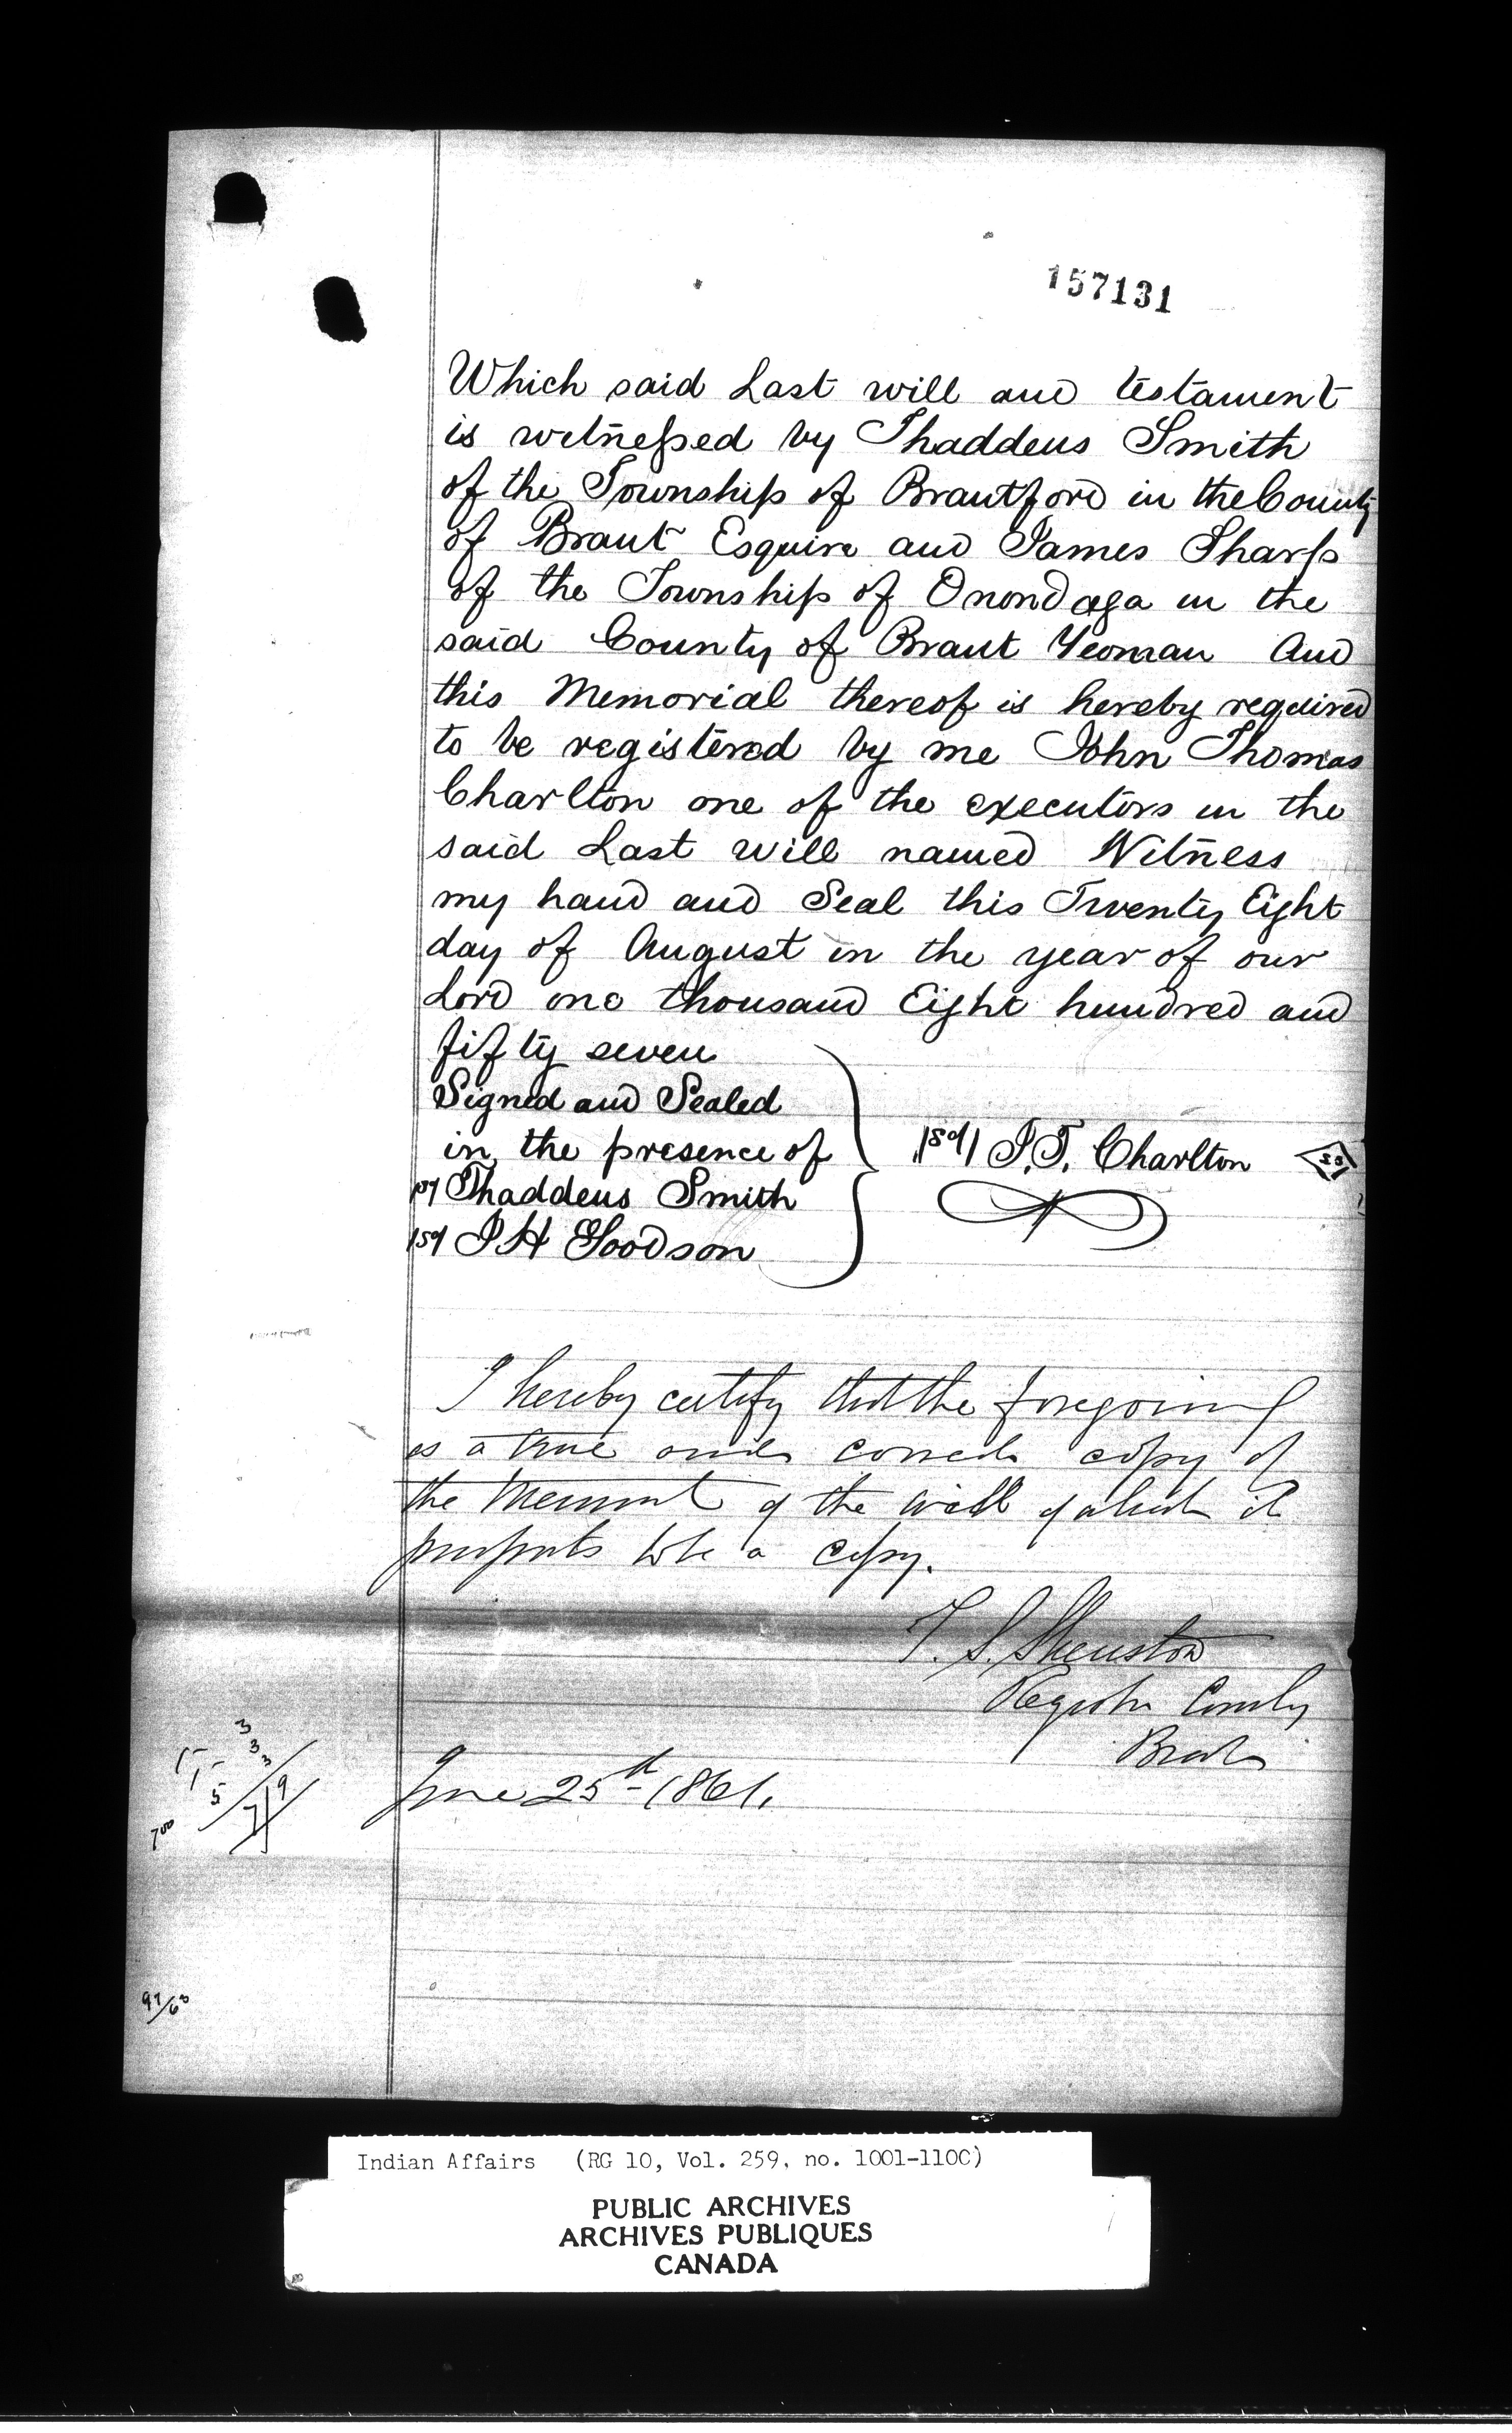 157131
Which said Last will and testament
is witnessed by Thaddeus Smith
of the Township of Brantford in the County
of Brant Esquire and James Sharp
of the Township of Onondaga in the
said County of Brant Yeoman And
this Memorial thereof is hereby required
to be registered by me John Thomas
Charlton one of the executors in the
said Last will named Witness
my hand and Seal this Twenty Eight
day of August in the year of our
Lord one thousand Eight hundred and
fifty seven
Signed and Sealed
in the presence of
Thaddeus Smith
J H Goodson
J. T. Charlton
I hereby certify that the foregoing
is a true and correct copy of
the Memorial of the will of which it
purports to be a copy.
T. S. Shenston
Registrar County
Brant
June 25th 1861.
3
3
3
5
9
7
700
97/60
Indian Affairs (RG 10, Vol. 259, no. 1001-1100)
PUBLIC ARCHIVES
ARCHIVES PUBLIQUES
CANADA